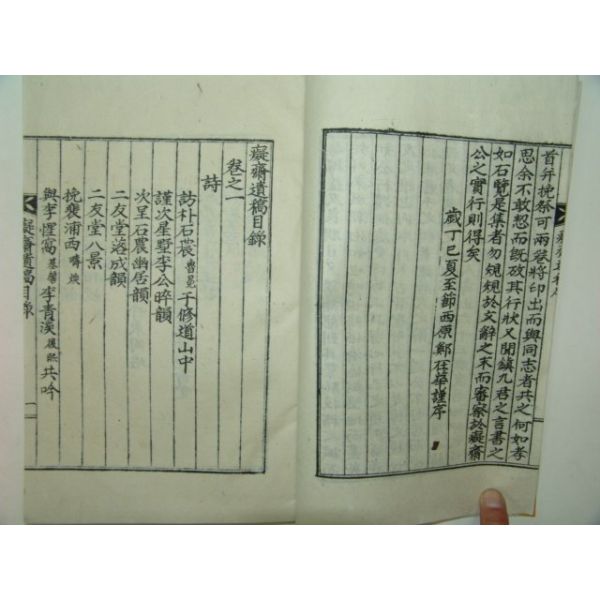 首弁挽祭可兩卷將印出而與同志者共之何如孝
思余不敢恕而旣攷其行狀又聞鎭九君之言書之
如右覽是集者勿規規於文辭之末而審察於癡齋
公之實行則得矣
歲丁巳夏至節西原鄭在華謹序
癡齋遺稿目錄
卷之一
詩
訪朴石農于修道山中
謹次星墅李公晬韻
次呈石農幽居韻
二友堂落成韻
二友堂八景
挽裵浦西
與李惺窩基馨李青溪共吟
癡齋遺稿目錄
一